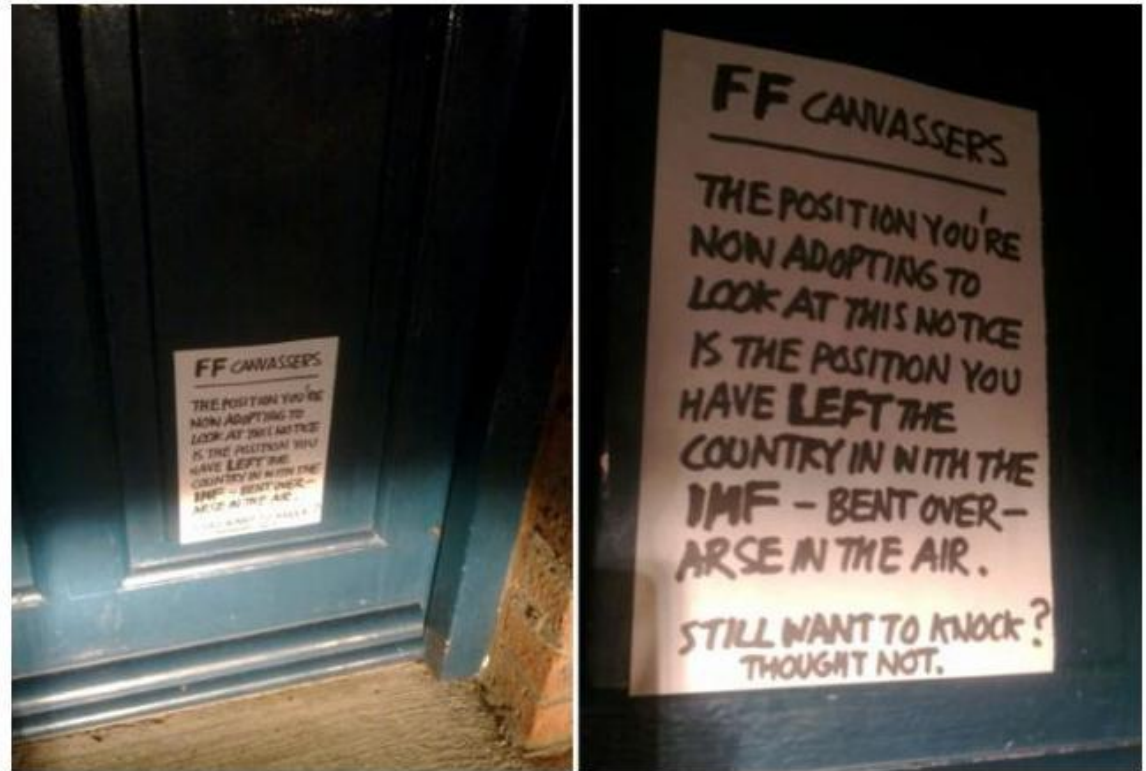 FF CANVASSERS
THE POSITION YOU'RE
NOW ADOPTING TO
LOOK AT THIS NOTICE
IS THE POSITION YOU
HAVE LEFT THE
COUNTRY IN WITH THE
IMF – BENT OVER –
ARSE IN THE AIR.
STILL WANT TO KNOCK?
THOUGHT NOT.
FF CANVASSERS
THE POSITION YOU'RE
NOW ADOPTING TO
LOOK AT THIS NOTICE
IS THE POSITION YOU
HAVE LEFT THE
COUNTRY IN WITH THE
IMF – BENT OVER –
ARSE IN THE AIR.
STILL WANT TO KNOCK?
THOUGHT NOT.